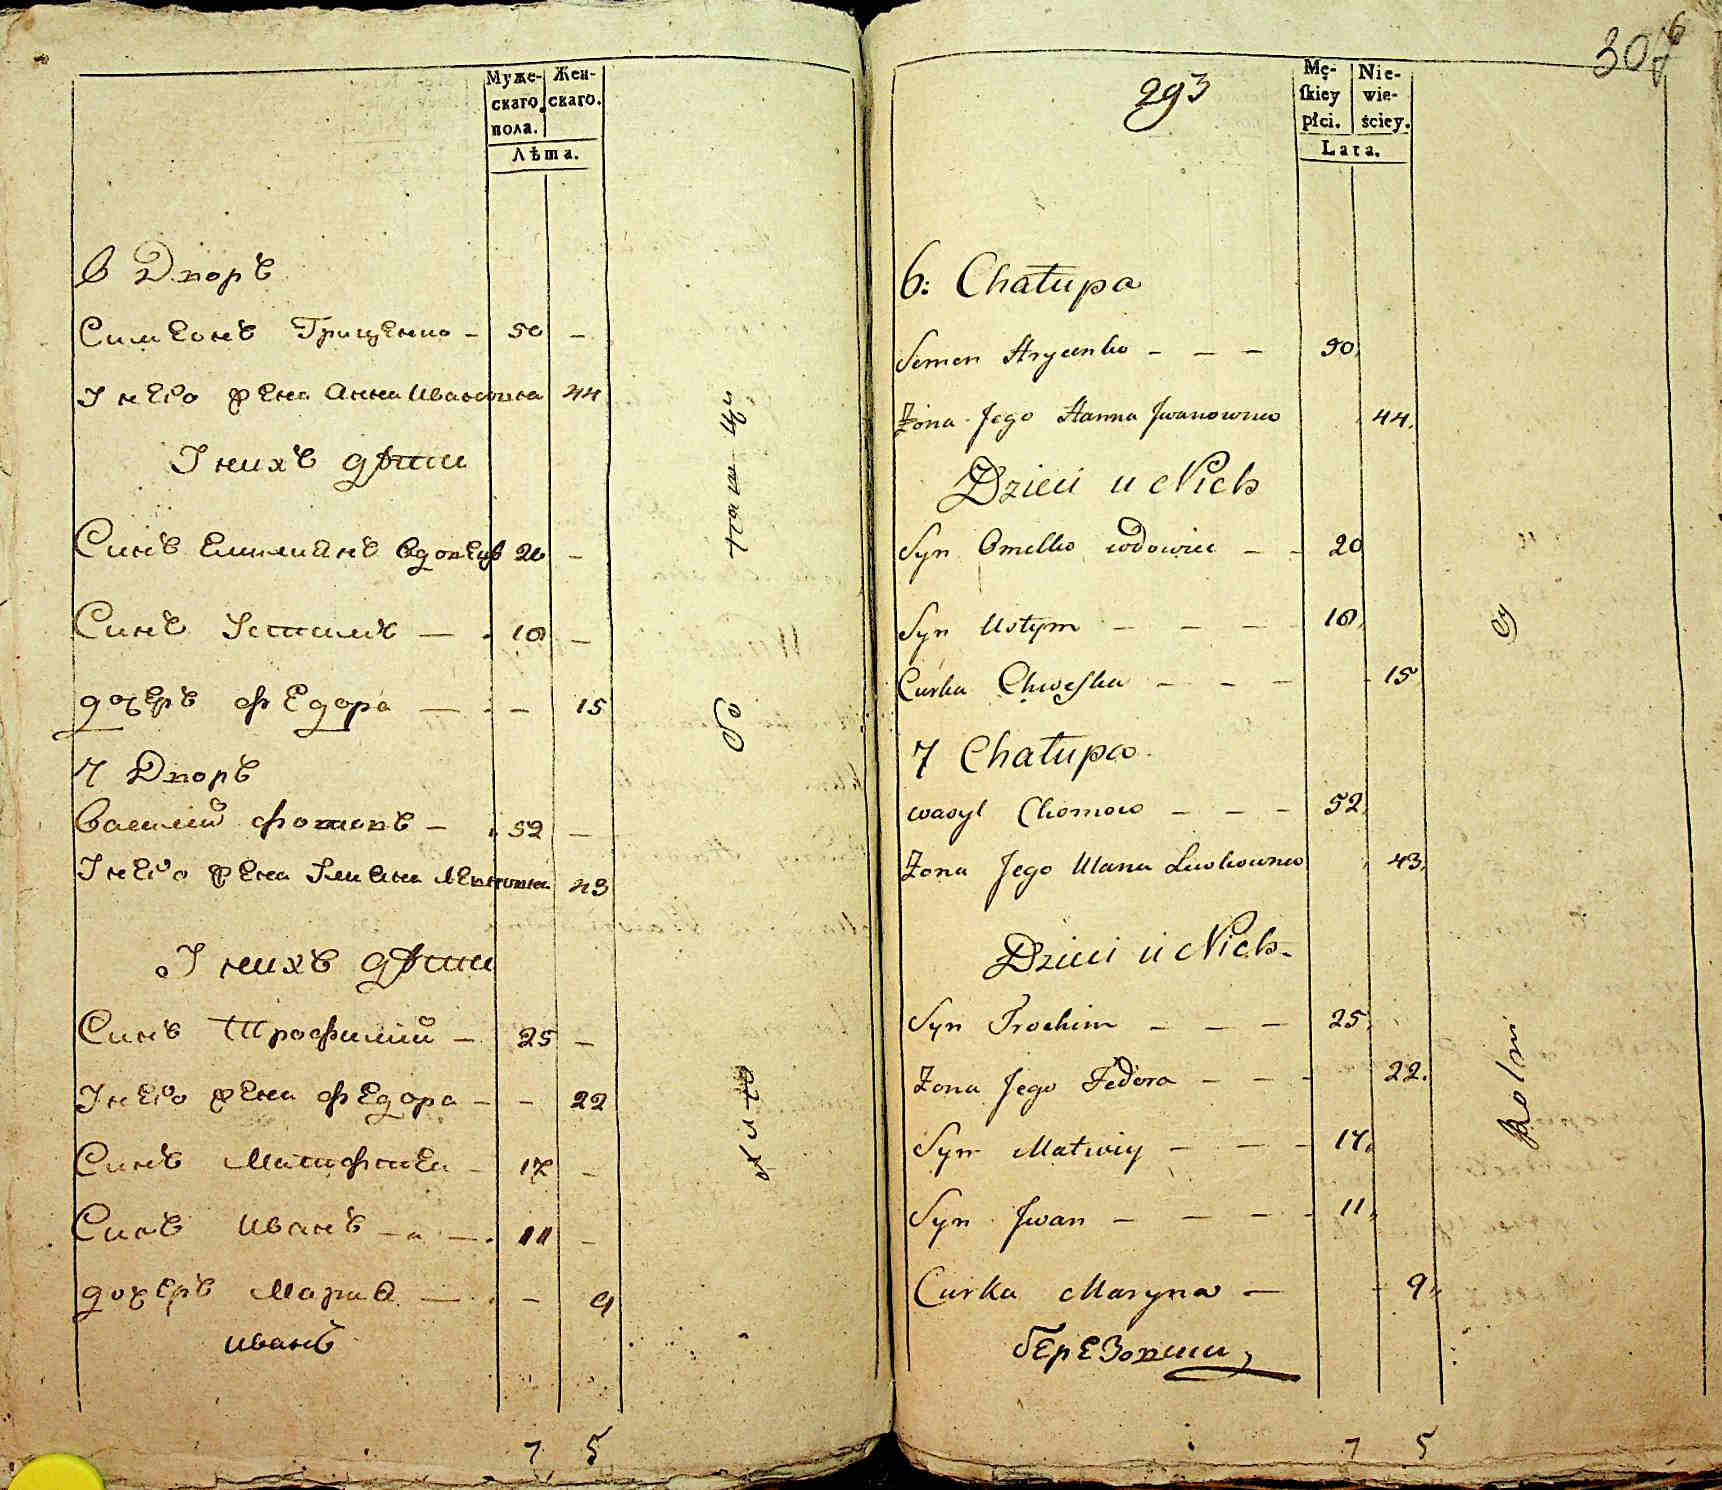 Муже-
скаго
пола.
Жен-
скаго.
Лѣта.
6 Дворъ
Симеонъ Грищенко - 50 -
У него жена Анна Ивановна 44
У нихъ дѣти
Синъ Емилианъ вдовецъ 20 -
Синъ Устимъ - 18 -
дочеръ Федора - - 15
7 Дворъ
Василий Фомовъ - 52 -
У него жена Улиана 43
У нихъ дѣти
Синъ Трофимий - 25 -
У него жена Федора - - 22
Синъ Матфией - 17 -
Синъ Иванъ - - 11 -
дочеръ Мария - - 9
Иванъ
7 5
307
6
293
Mę-
skiey
płci.
Nie-
wie-
ściey.
Lata.
6: Chałupa
Semen Hrycenko - - - 50
Żona Jego Hanna Jwanowna 44
Dzieci u Nich
Syn Omelko wdowiec - - 20
Syn Ustym - - - - 18
Curka Chweſka - - - 15
7 Chałupa
Wasyl Chomow - - - 52
Żona Jego Ulana 43
Dzieci u Nich
Syn Trochim - - - 25
Żona Jego Fedora - - - 22
Syn Matwiy - - - 17
Syn Jwan - - - - 11
Curka Maryna - 9
березовский
Rolni
7 5